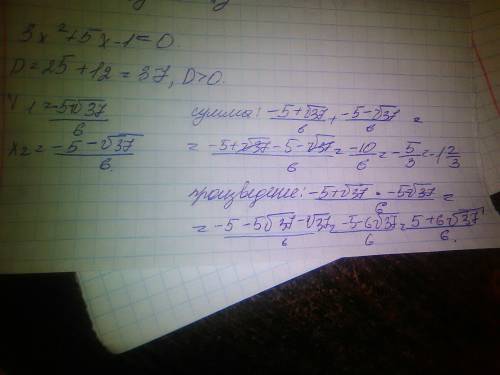 3x²+5x-1=0.
D=25+12=37, D>0.
x1=-5√37/6
x2=-5-√37/6.
сумма: -5+√37/6 + -5-√37/6 =
= -5+√37-5-√37/6 = -10/6 = -5/3 = -1 2/3
произведение: -5+√37 · -5√37/6 =
= -5-5√37-√37/6 = -5-6√37/6 = 5+6√37/6.